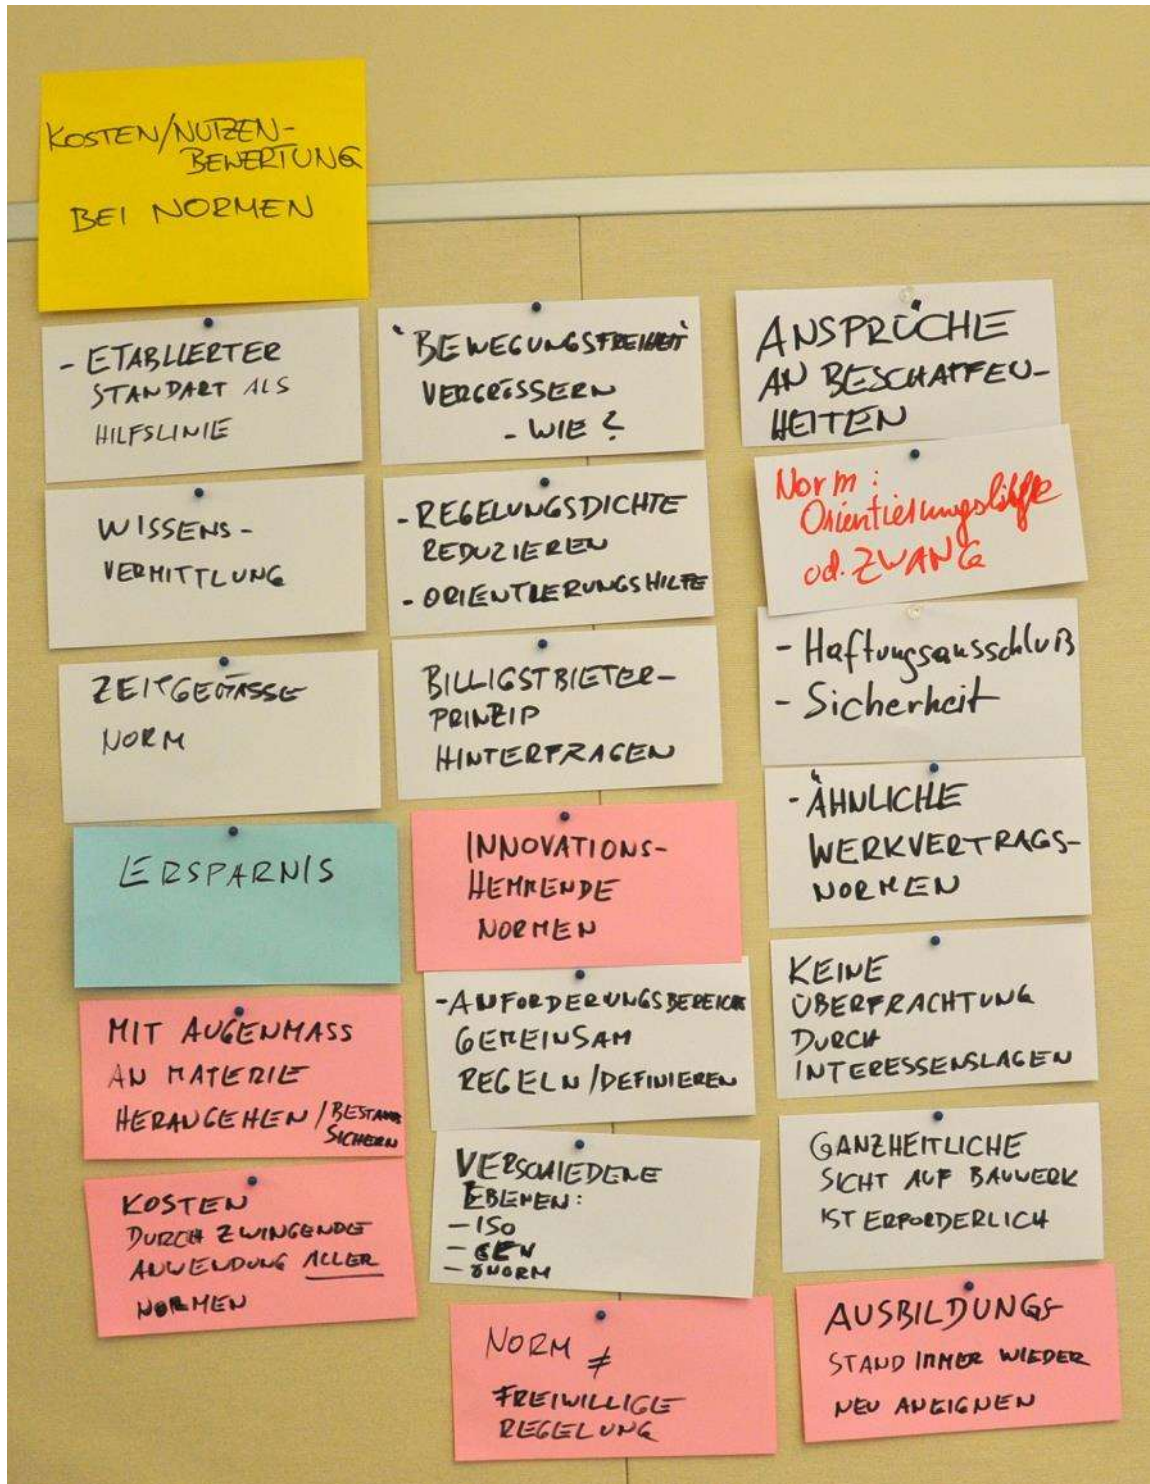 KOSTEN/NUTZEN-
BEWERTUNG
BEI NORMEN
- ETABLIERTER
STANDART ALS
HILFSLINIE
WISSENS-
VERMITTLUNG
ZEITGEMÄSSE
NORM
ERSPARNIS
MIT AUGENMASS
AN MATERIE
HERANGEHEN / BESTAND
SICHERN
KOSTEN
DURCH ZWINGENDE
ANWENDUNG ALLER
NORMEN
'BEWEGUNGSFREIHEIT'
VERGRÖSSERN
- WIE ?
- REGELUNGSDICHTE
REDUZIEREN
- ORIENTIERUNGSHILFE
BILLIGSTBIETER-
PRINZIP
HINTERFRAGEN
INNOVATIONS-
HEMMENDE
NORMEN
- ANFORDERUNGSBEREICH
GEMEINSAM
REGELN / DEFINIEREN
VERSCHIEDENE
EBENEN:
- ISO
- CEN
- ÖNORM
NORM ≠
FREIWILLIGE
REGELUNG
ANSPRÜCHE
AN BESCHAFFEN-
HEITEN
Norm :
Orientierungshilfe
od. ZWANG
- Haftungsausschluß
- Sicherheit
- ÄHNLICHE
WERKVERTRAGS-
NORMEN
KEINE
ÜBERFRACHTUNG
DURCH
INTERESSENSLAGEN
GANZHEITLICHE
SICHT AUF BAUWERK
IST ERFORDERLICH
AUSBILDUNGS-
STAND IMMER WIEDER
NEU ANEIGNEN